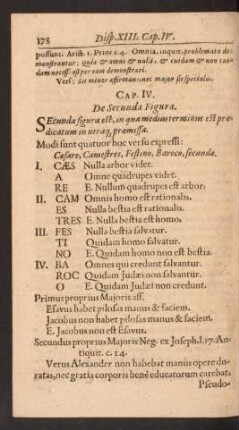 178 Disp. XIII. Cap. IV.
possunt. Arist. 1. Prior c.4. Omnia, inquit, problemata de-
monstrantur: Quia & omne & nulla, & quidam & non qui-
dam necesse est per eam demonstrari.
Vers: Sit minor affirmans: nec major sit specialis.
CAP. IV.
De Secunda Figura.
SEcunda figura est, in qua medius terminus est præ-
dicatum in utraq; præmissa.
Modi sunt quatuor hoc versu expressi:
Cesare, Camestres, Festino, Baroco, secundæ.
I. CÆS Nulla arbor videt.
A Omne quadrupes videt.
RE E. Nullum quadrupes est arbor.
II. CAM Omnis homo est rationalis.
ES Nulla bestia est rationalis.
TRES E. Nulla bestia est homo.
III. FES Nulla bestia salvatur.
TI Quidam homo salvatur.
NO E. Quidam homo non est bestia.
IV. BA Omnes qui credunt salvantur.
ROC Quidam Judæi non salvantur.
O E. Quidam Judæi non credunt.
Primus proprius Majoris aff.
Esavus habet pilosas manus & faciem.
Jacobus non habet pilosas manus & faciem.
E. Jacobus non est Esavus.
Secundus proprius Majoris Neg. ex Joseph. l. 17. An-
tiquit. c. 14.
Verus Alexander non habebat manus opere du-
ratas, nec gratia corporis bene educatorum carebat.
Pseudo-